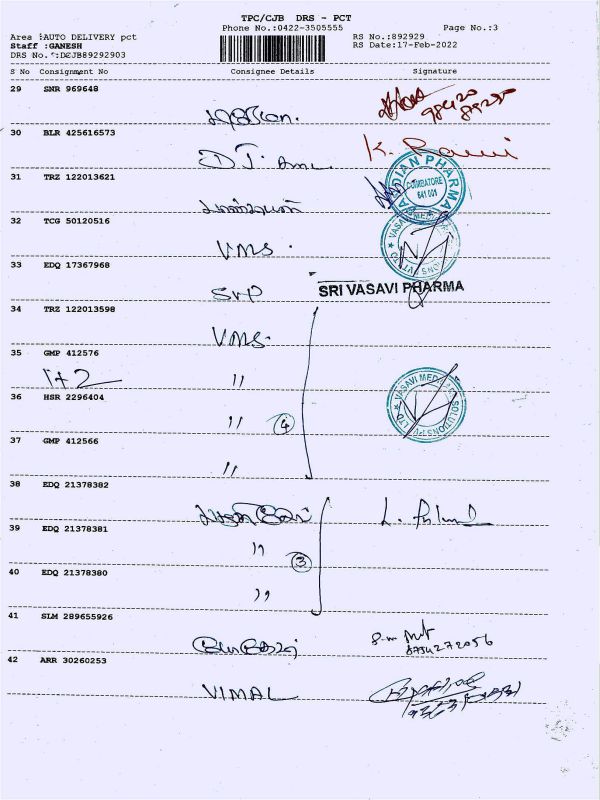 TPC/CJB DRS - PCT
Phone No.:0422-3505555 Page No.:3
Area :AUTO DELIVERY pct RS No.:892929
Staff :GANESH RS Date:17-Feb-2022
DRS No.:DCJB89292903
S No Consignment No Consignee Details Signature
29 SNR 969648
30 BLR 425616573
K. Ramni
31 TRZ 122013621
COIMBATORE 641 001
32 TCG 50120516
VMS.
33 EDQ 17367968
SVP SRI VASAVI PHARMA
34 TRZ 122013598
VMS.
35 GMP 412576
1+2 "
36 HSR 2296404
" 4
VASAVI MED SOLUTIONS PVT LTD
37 GMP 412566
"
38 EDQ 21378382
39 EDQ 21378381
" 3
40 EDQ 21378380
"
41 SLM 289655926
8754272056
42 ARR 30260253
VIMAL